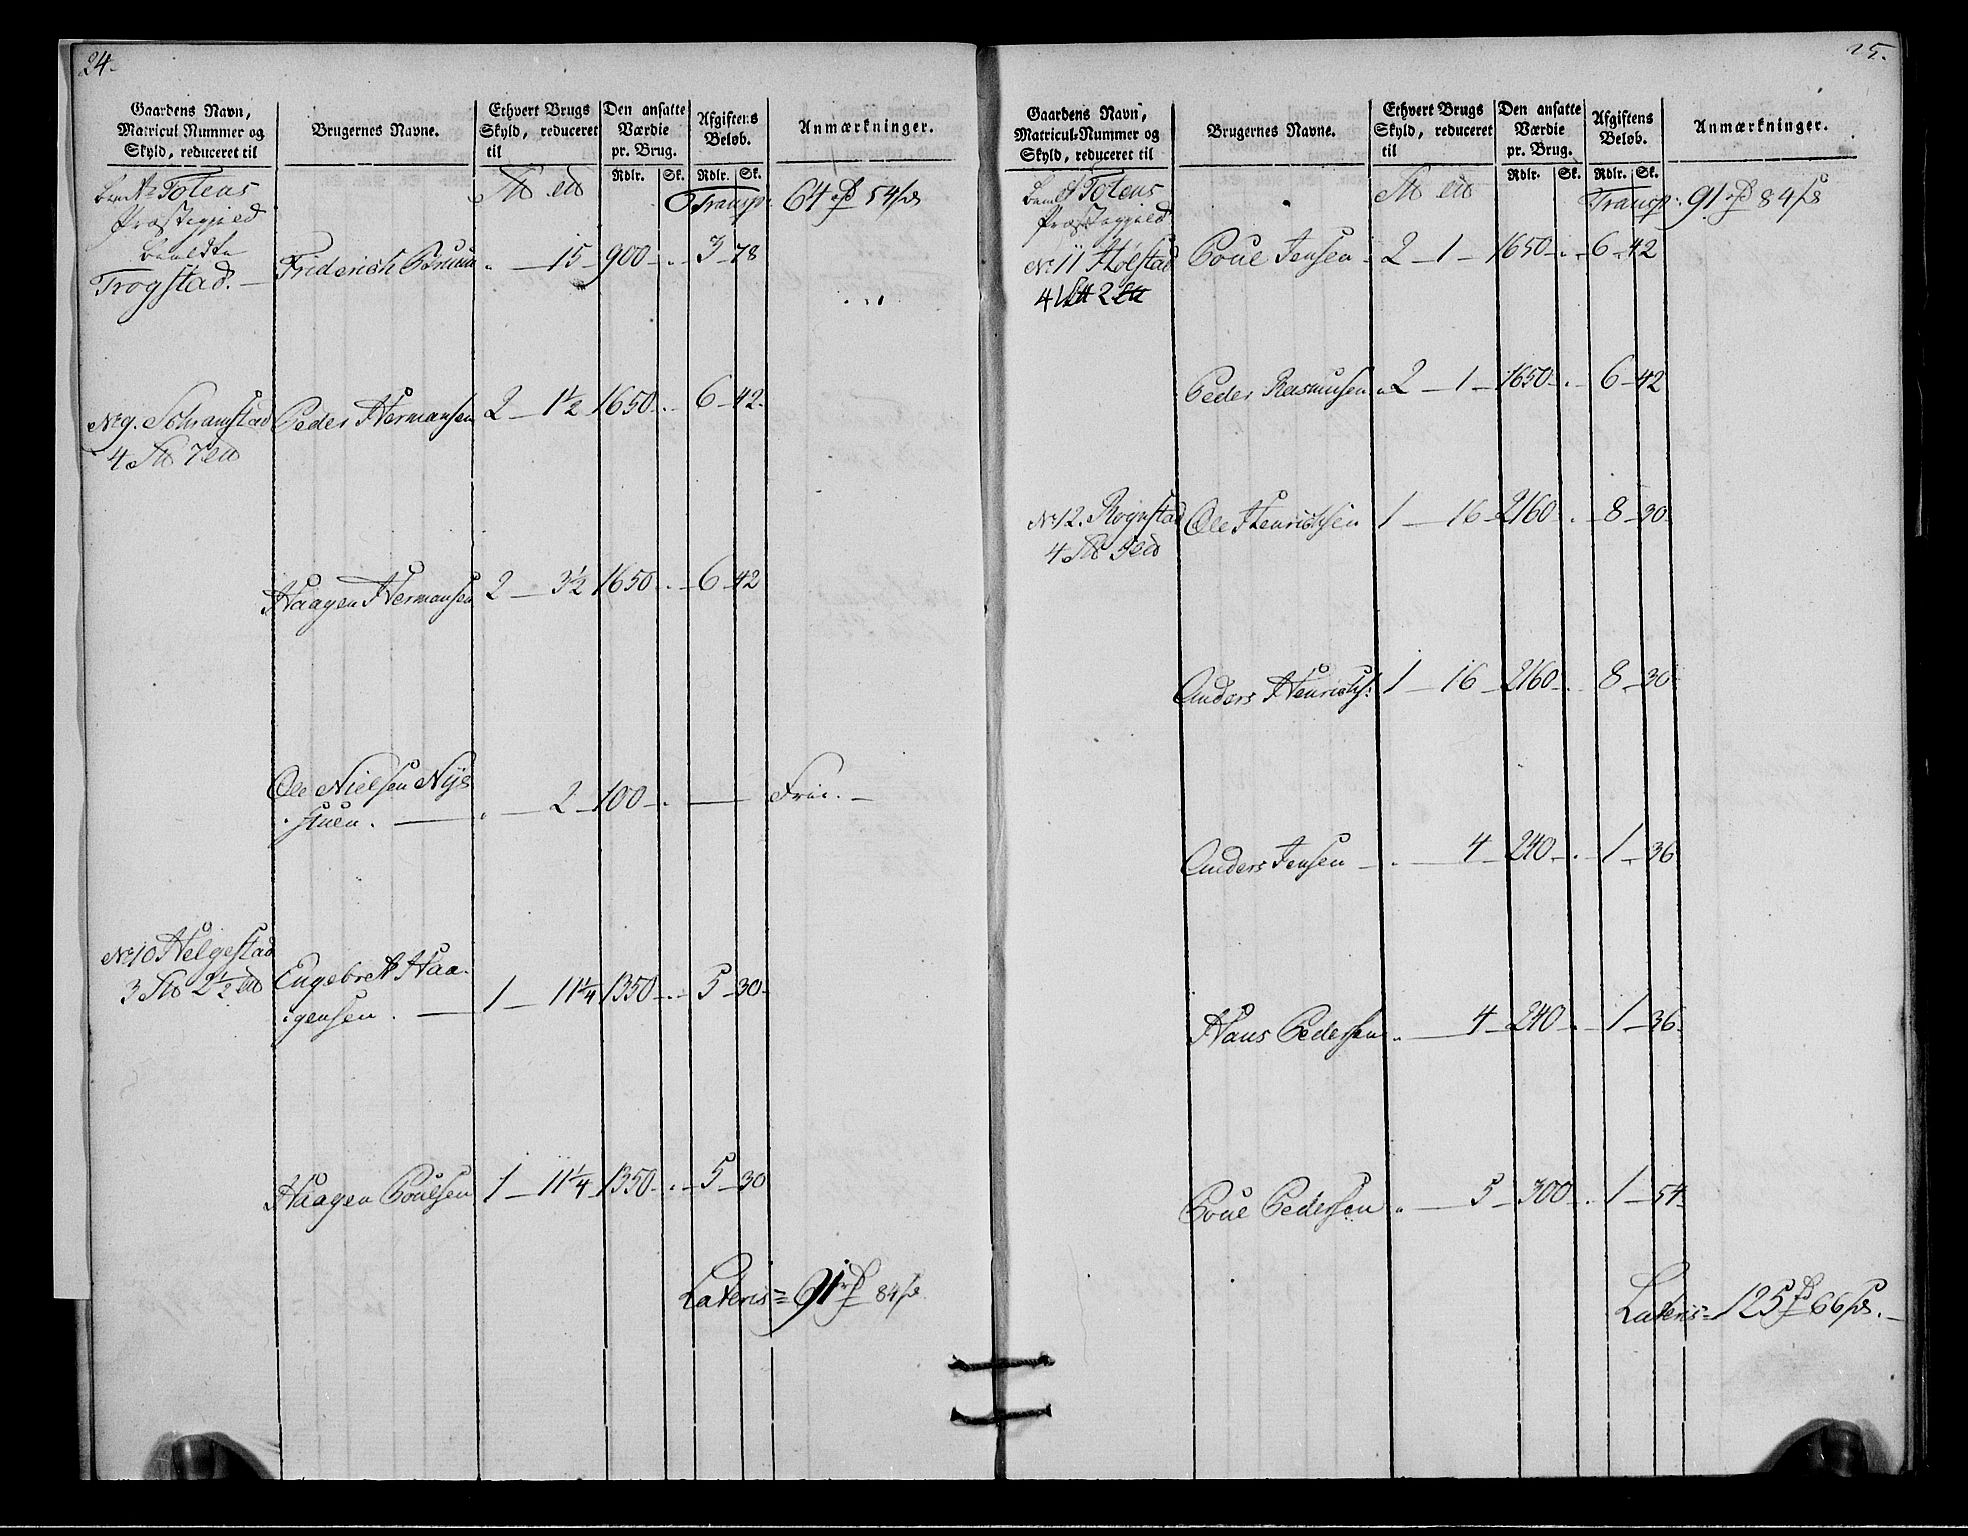 24.
Gaardens Navn,
Matricul Nummer og
Skyld, reduceret til
Brugernes Navne.
Ethvert Brugs
Skyld, reduceret
til
Den ansatte
Værdie
pr. Brug.
Afgiftens
Beløb.
Anmærkninger.
Rdlr. Sk. Rdlr. Sk.
Totens
Præstegield
Transp: 64 54
Trogstad. Friderich 15 900 3 78
No 9. Schramstad Peder Hermansen 2 1½ 1650 6 42
4 7
Haagen Hermansen 2 3½ 1650 6 42
Ole Nielsen Nÿe
stuen. 2 100 Frie.
No 10 Helgestad Engebret Haa-
3 2½ gensen. 1 11¼ 1350 5 30
Haagen Pouelsen 1 11¼ 1350 5 30
Lateris 91 84
25.
Gaardens Navn,
Matricul-Nummer og
Skyld, reduceret til
Brugernes Navne.
Ethvert Brugs
Skyld, reduceret
til
Den ansatte
Værdie
pr. Brug.
Afgiftens
Beløb.
Anmærkninger.
Rdlr. Sk. Rdlr. Sk.
Totens
Præstegield
Transp: 91 84
No 11 Poul Jensen 2 1 1650 6 42
4 2
Peder Rasmusen 2 1 1650 6 42
No 12. Rognstad Ole Henrichsen 1 16 2160 8 30
4 5
Anders Henrichs: 1 16 2160 8 30
Anders Jensen 4 240 1 36
Hans Pedersen 4 240 1 36
Poul Pedersen 5 300 1 54
Lateris 125 66